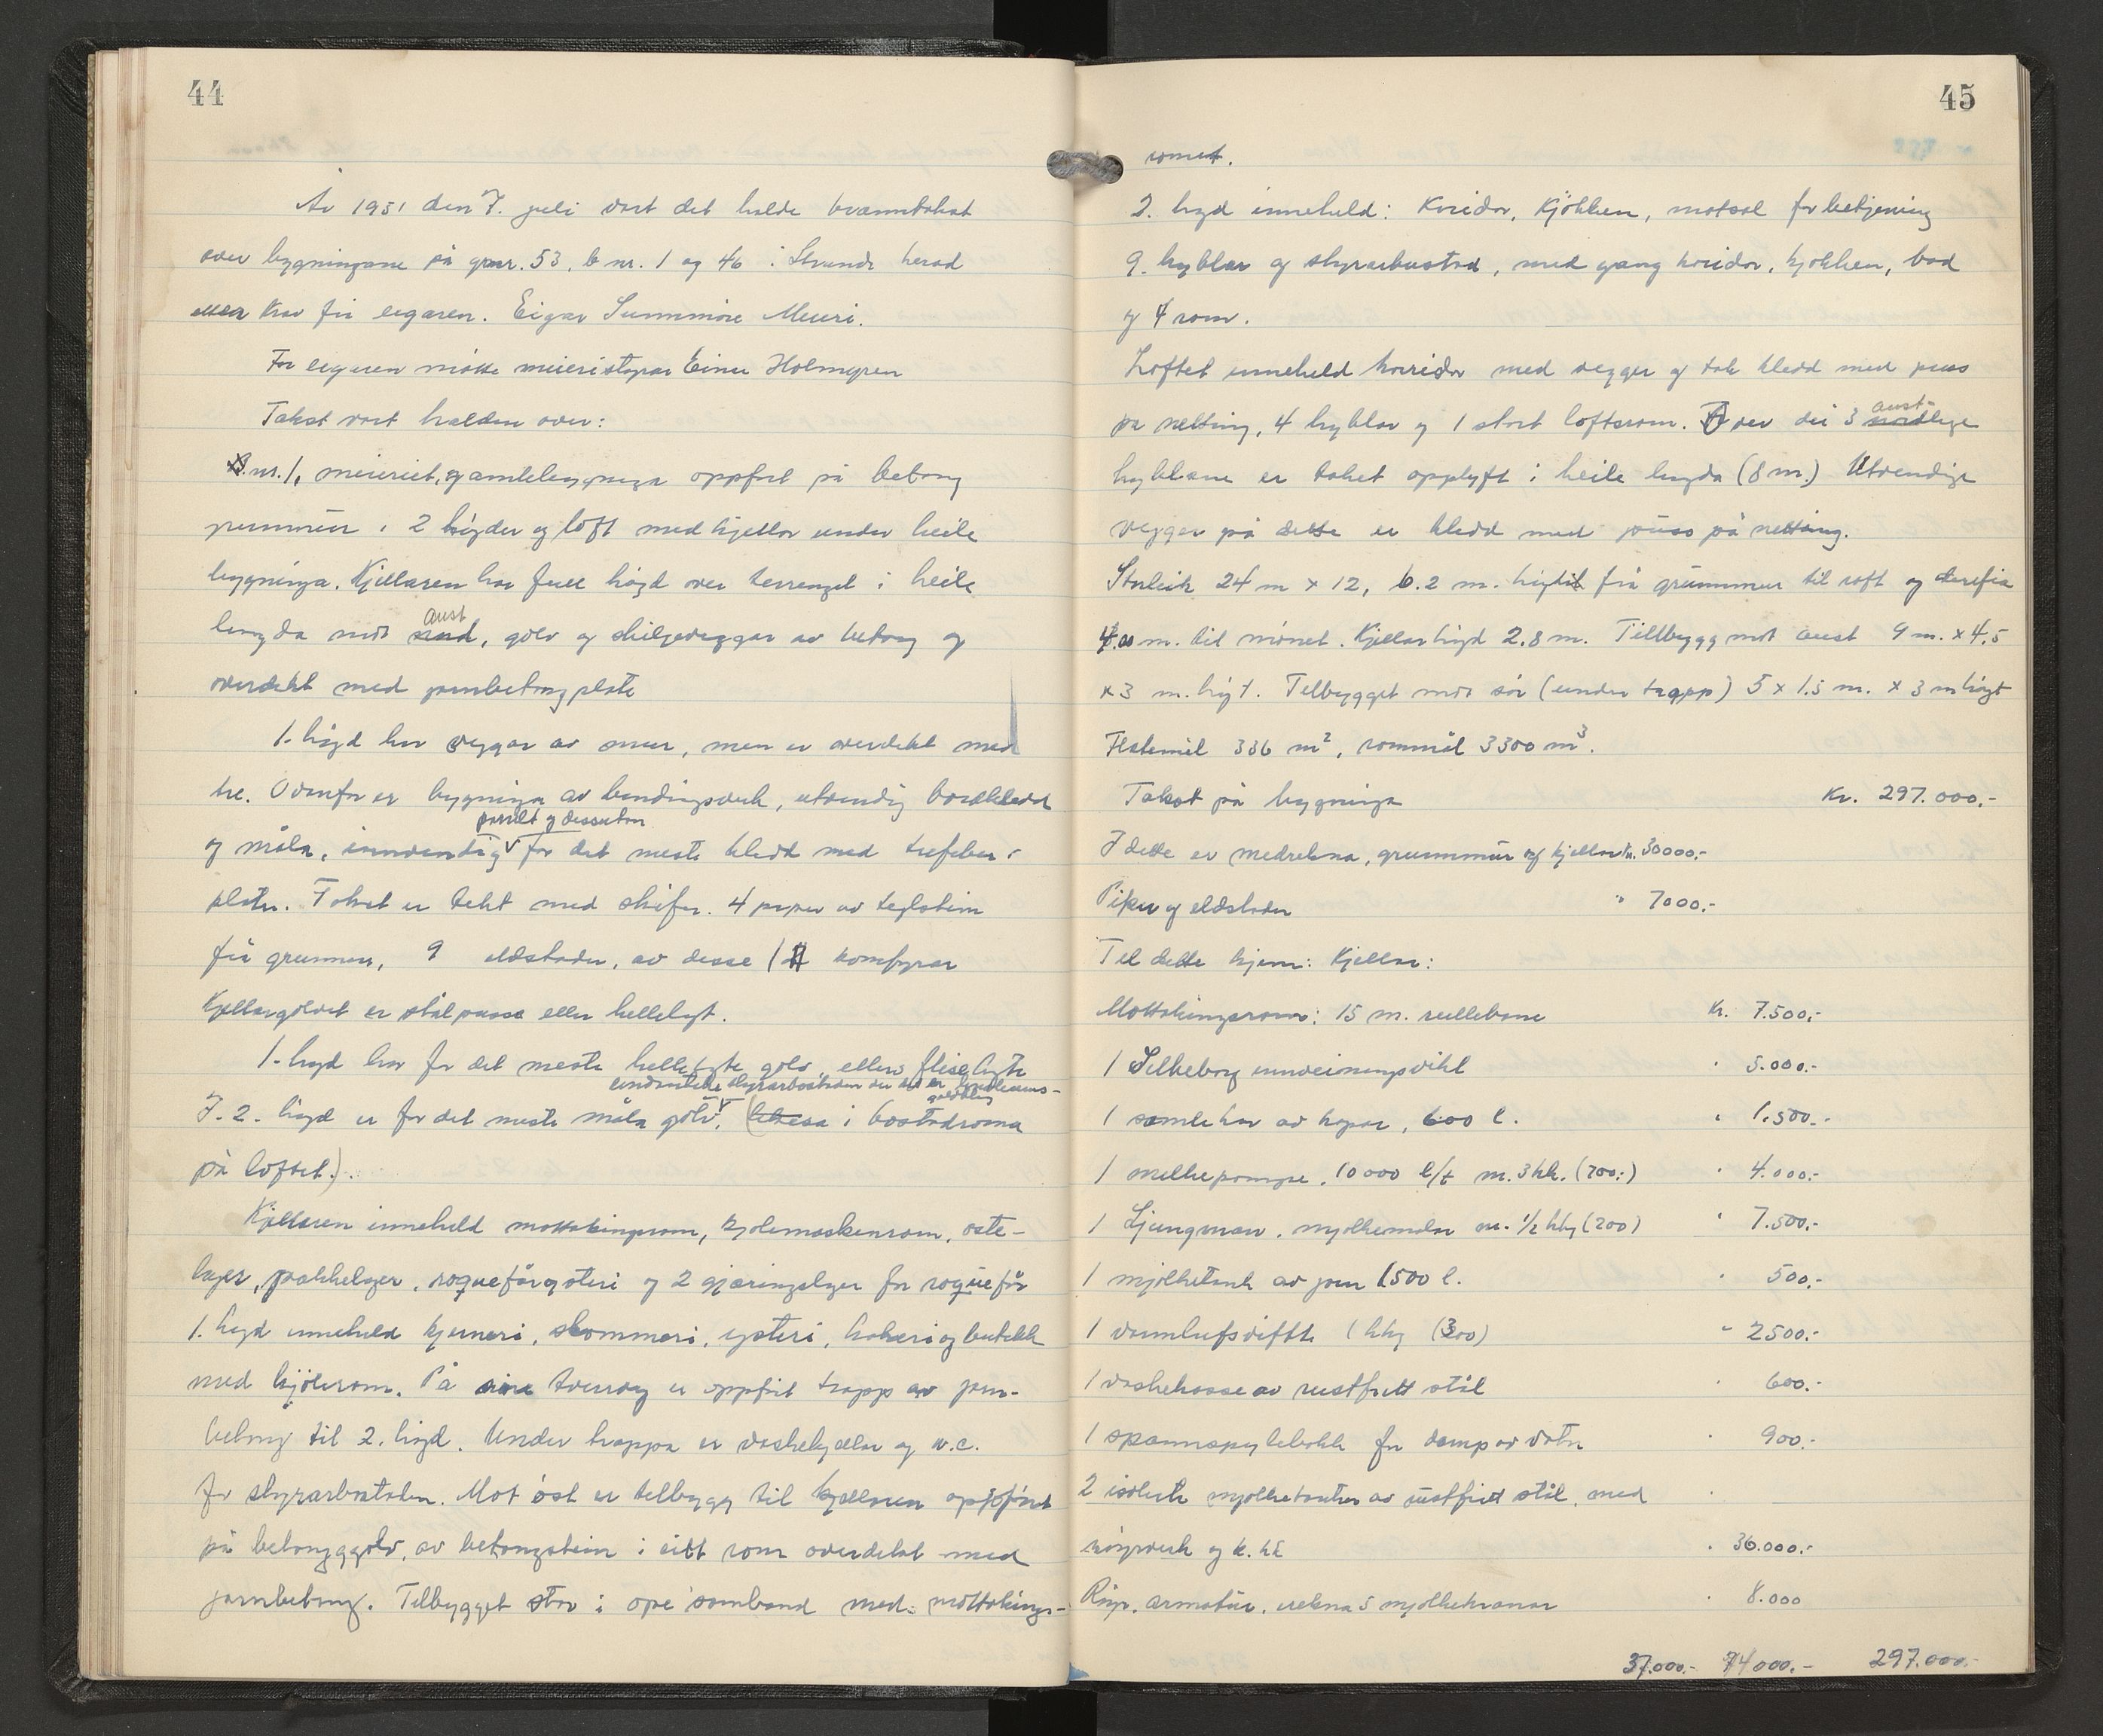 44
År 1951 den 7. juli vart det halde branntakst
over bygningane på gnr. 53, b nr. 1 og 46 i Stranda herad
etter krav frå eigaren. Eigar Sunnmøre Meieri.
For eigaren møtte meieristyrar Einar Holmgren
Takst vart halden over:
B.nr. 1, meieriet, gamlebygninga oppført på betong
grunnmur i 2 høgder og loft med kjellar under heile
bygninga. Kjellaren har full høgd over terrenget i heile
aust
lengda mot nord, golv og skiljeveggar av betong og
overdekt med jarnbetongplate
1. høgd har veggar av mur, men er overdekt med
tre. Ovanfor er bygninga av bindingsverk, utvendig bordkledd
panelt og dessutan
og måla, innvendig for det meste kledd med trefiber-
plater. Taket er tekt med skifer. 4 piper av teglstein
frå grunnen, 9 eldstader, av desse 1 komfyrar
Kjellargolvet er stålpussa eller hellelagt.
1. høgd har for det meste hellelagte golv, ellers fliselagte
unntatt styrarbustaden der det er linoleums-
golvbelegg
I 2. høgd er for det meste måla golv. (likesa i bostadroma
på loftet).
Kjellaren inneheld mottakingsrom, kjølemaskenrom, oste-
lager, pakkelager, roquefårysteri og 2 gjæringslager for roquefår
1. høgd inneheld kjerneri, skommeri, ysteri, kokeri og butikk
med kjølerom. På øvre tverrveg er oppført trapp av jarn-
betong til 2. høgd. Under trappa er vaskekjellar og w.c.
for styrarbustaden. Mot øst er tilbygg til kjellaren oppført
på betonggolv, av betongstein i eitt rom overdekt med
jarnbetong. Tilbygget står i ope samband med mottakings-
45
romet.
2. høgd inneheld: Koridor, kjøkken, matsal for betjening
9. hyblar og styrarbustad, med gang koridor, kjøkken, bad
og 4 rom.
Loftet inneheld korridor med vegger og tak kledd med puss
aust-
på netting, 4 hyblar og 1 stort loftsrom. Over dei 3 nordlege
hyblane er taket opplyft i heile lengda (8 m.) Utvendige
vegger på dette er kledd med puss på netting.
Storleik 24 m x 12, 6.2 m. høgd frå grunnmur til raft og derifra
4.00 m. til mønet. Kjellarhøgd 2.8 m. Tillbygg mot aust 9 m. x 4.5
x 3 m. høgt. Tilbygget mot sør (under trapp) 5 x 1.5 m. x 3 m høgt
Flatemål 336 m², rommål 3300 m³.
Takst på bygninga Kr. 297.000,-
I dette er medrekna, grunnmur og kjellar kr. 30000,-
Piper og eldstader " 7000.-
Til dette kjem: Kjellar:
Mottakingsrom: 15 m. rullebane Kr. 7.500,-
1 Silkeborg innveiningsvikt " 5.000.-
1 samlekar av kopar, 600 l. " 1.500.-
1 melkepumpe, 10000 l/t m. 3 hk. (700:) " 4.000.-
1 Ljungman, mjølkemålar m. 1/2 hkj (200) " 7.500,-
1 mjølketank av jarn 1500 l. " 500.-
1 varmluftsvifte 1 hkj (300) " 2500.-
1 vaskekasse av rustfritt stål " 600.-
1 spannspylebokk for damp og vatn " 900.-
2 isolerte mjølketanker av rustfritt stål, med "
rørverk og h. hk " 36.000.-
Røyr, armatur, irekna 5 mjølkekranar " 8.000
37.000.- 74000.- 297.000.-